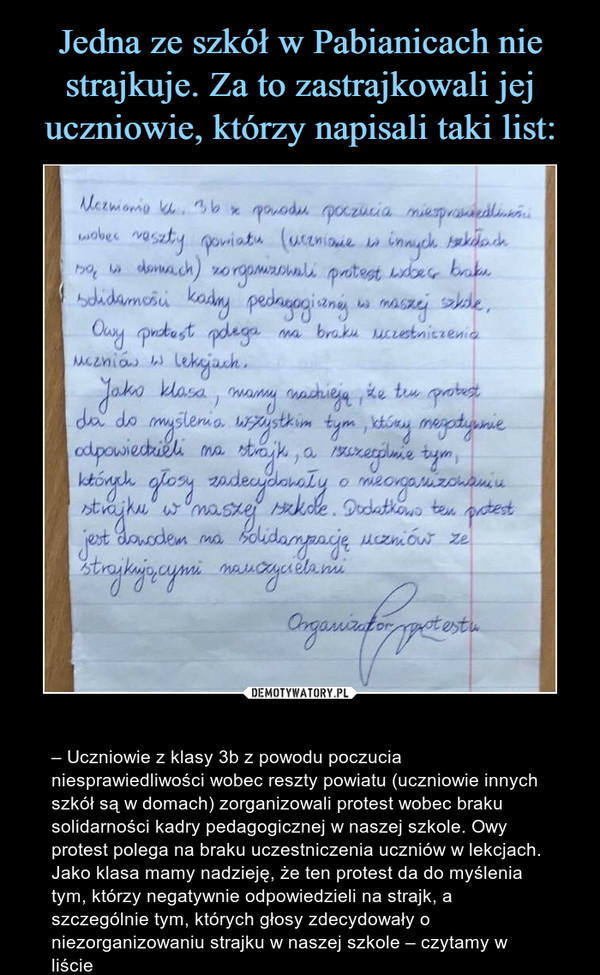 Jedna ze szkół w Pabianicach nie
strajkuje. Za to zastrajkowali jej
uczniowie, którzy napisali taki list:
Uczniowie kl. 3b z powodu poczucia niesprawiedliwości
wobec reszty powiatu (uczniowie w innych szkołach
są w domach) zorganizowali protest wobec braku
solidarności kadry pedagogicznej w naszej szkole.
Owy protest polega na braku uczestniczenia
uczniów w lekcjach.
Jako klasa, mamy nadzieję, że ten protest
da do myślenia wszystkim tym, którzy negatywnie
odpowiedzieli na strajk, a szczególnie tym,
których głosy zadecydowały o nieorganizowaniu
strajku w naszej szkole. Dodatkowo ten protest
jest dowodem na solidaryzację uczniów ze
strajkującymi nauczycielami
Organizator protestu
DEMOTYWATORY.PL
– Uczniowie z klasy 3b z powodu poczucia
niesprawiedliwości wobec reszty powiatu (uczniowie innych
szkół są w domach) zorganizowali protest wobec braku
solidarności kadry pedagogicznej w naszej szkole. Owy
protest polega na braku uczestniczenia uczniów w lekcjach.
Jako klasa mamy nadzieję, że ten protest da do myślenia
tym, którzy negatywnie odpowiedzieli na strajk, a
szczególnie tym, których głosy zdecydowały o
niezorganizowaniu strajku w naszej szkole – czytamy w
liście